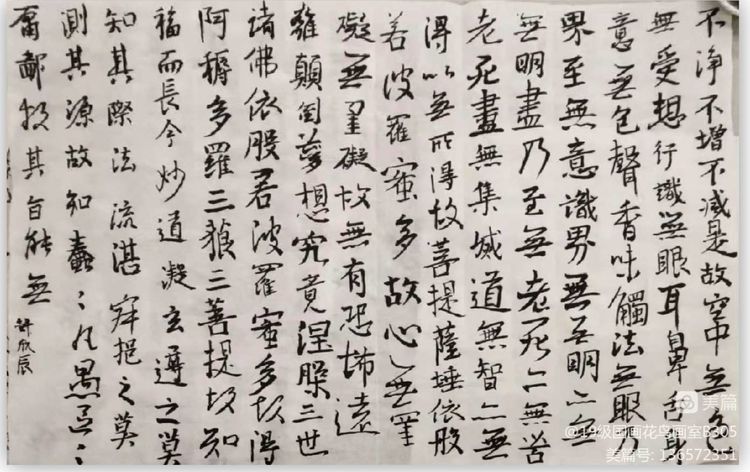 不淨不增不減是故空中無色
無受想行識無眼耳鼻舌身
意無色聲香味觸法無眼
界至無意識界無無明亦無
無明盡乃至無老死亦無苦
老死盡無集滅道無智亦無
得以無所得故菩提薩埵依般
若波羅蜜多故心無罣
礙無罣礙故無有恐怖遠
離顛倒夢想究竟涅槃三世
諸佛依般若波羅蜜多故得
阿耨多羅三藐三菩提故知
福而長今妙道凝玄遵之莫
知其際法流湛寂挹之莫
測其源故知蠢〻凡愚區〻
庸鄙投其旨能無
許欣辰
美篇
@19级国画花鸟画室B305
美篇号: 136572351